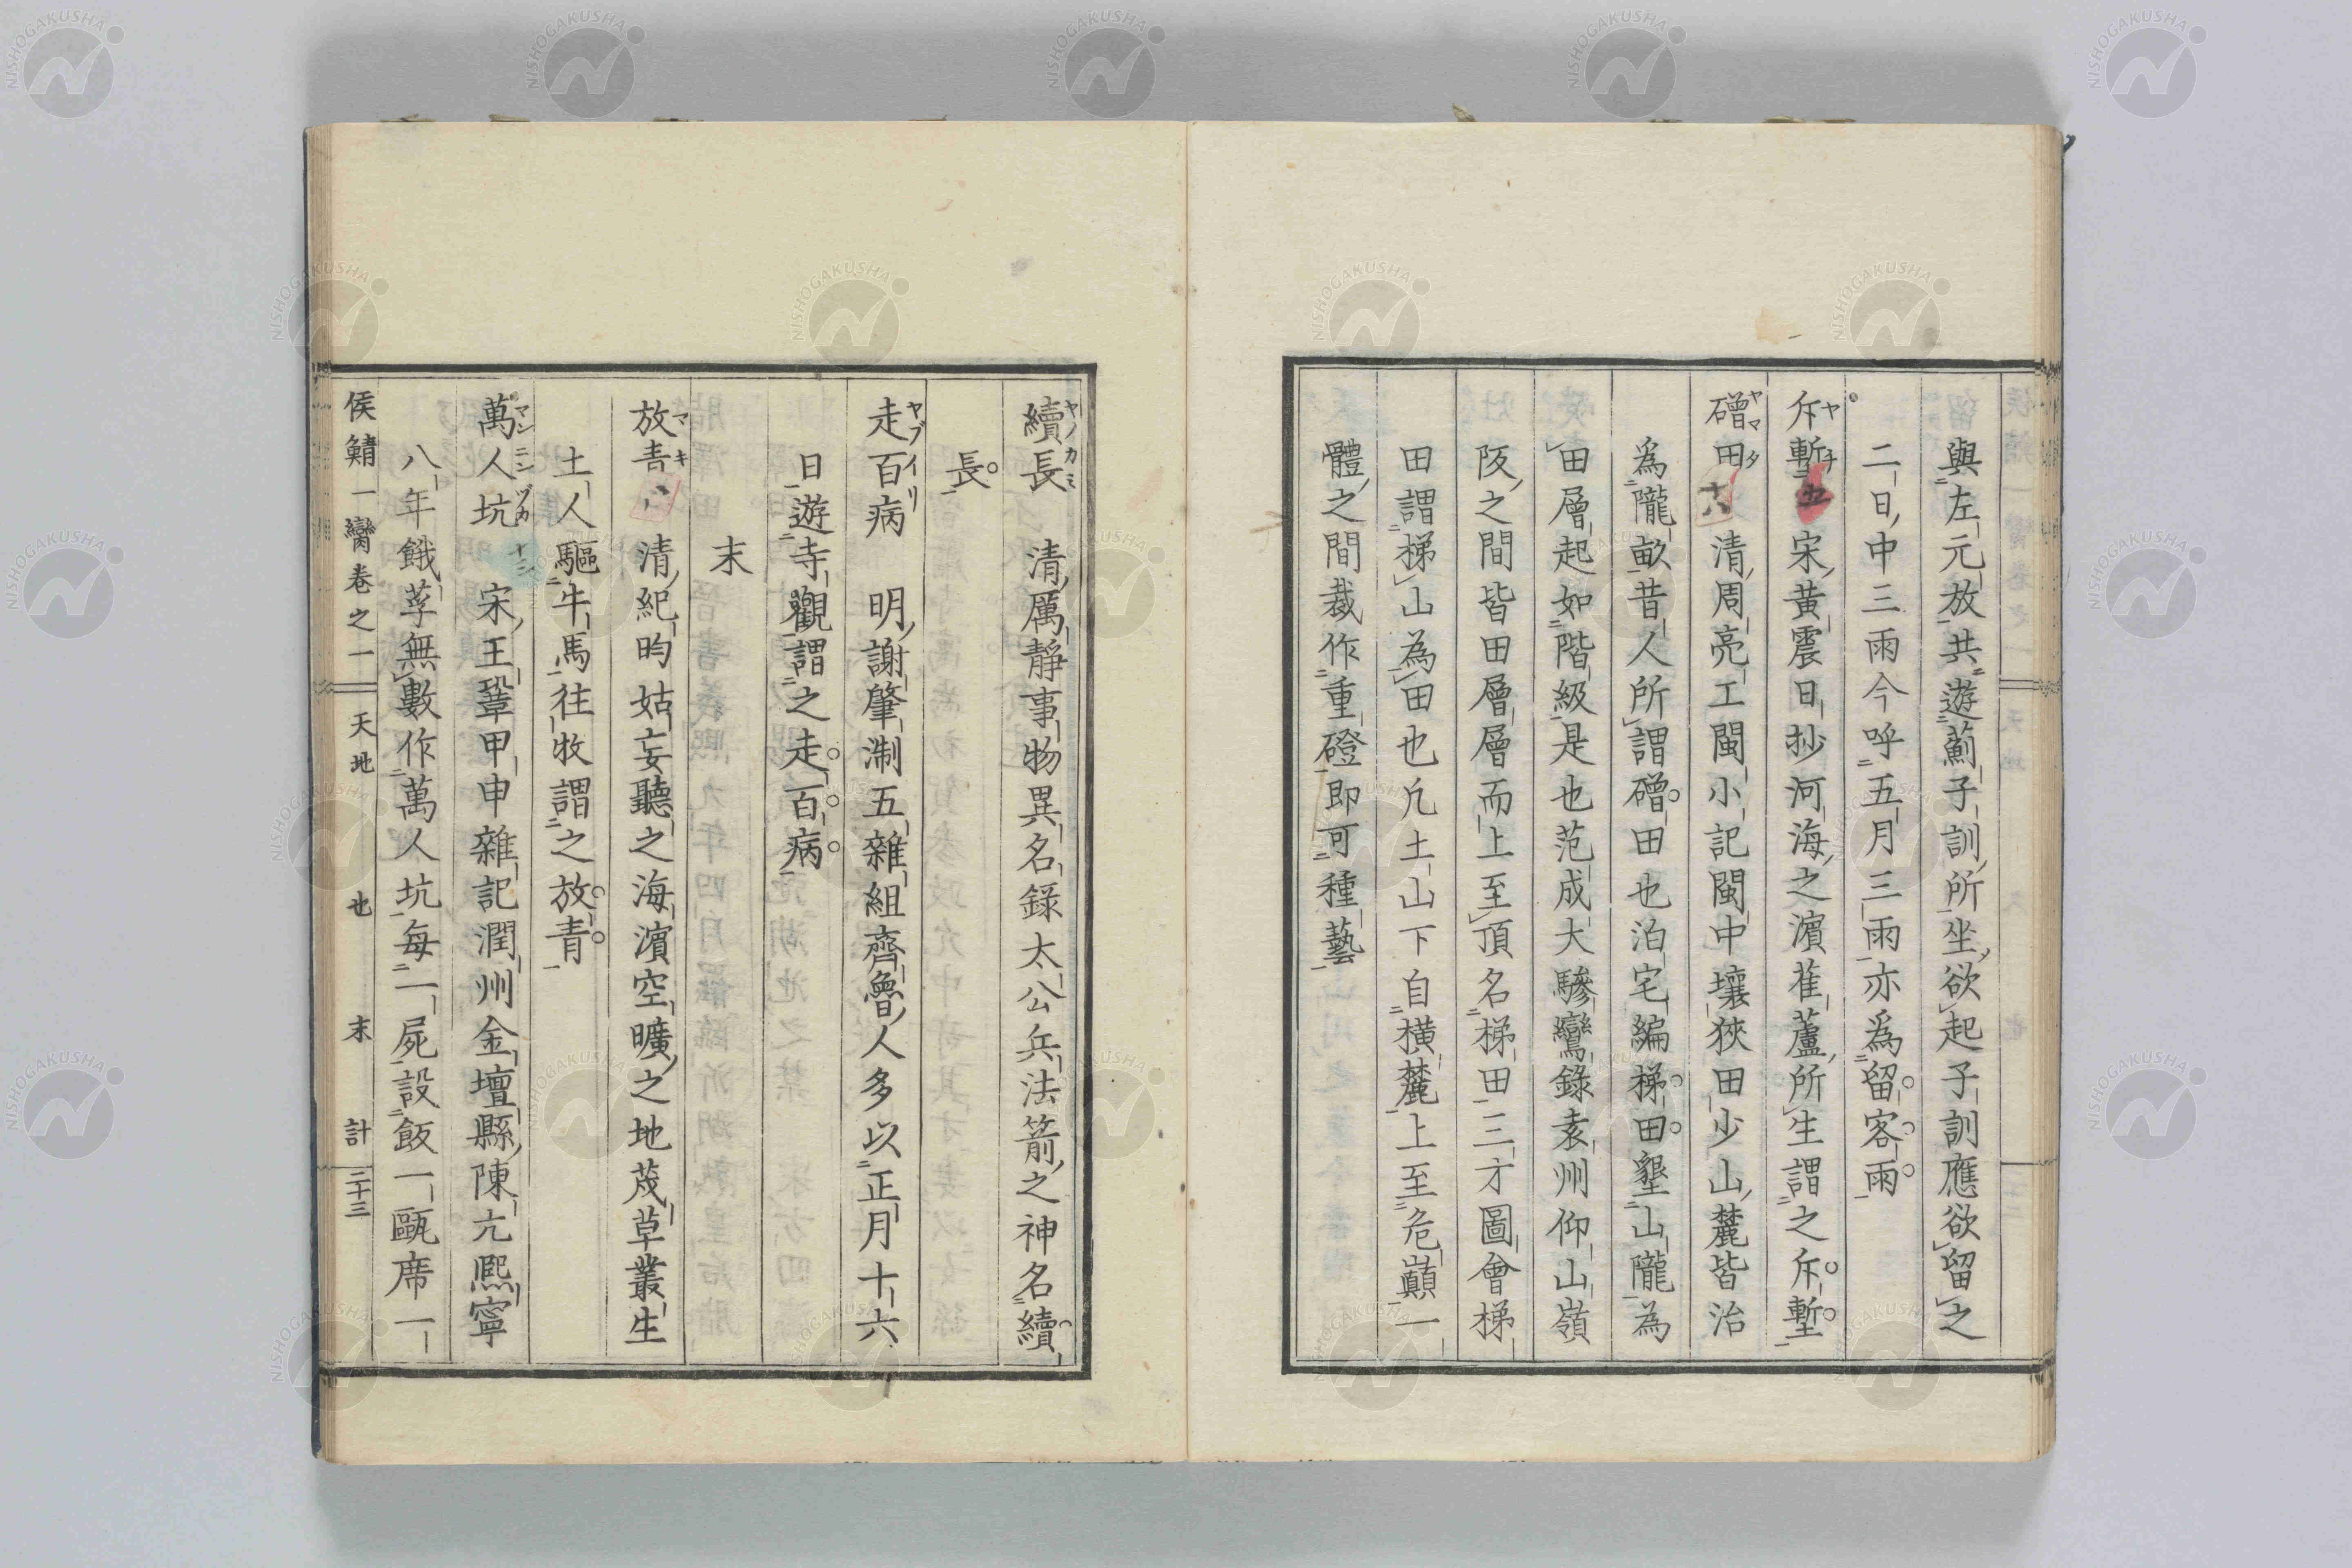 與左元放共遊薊子訓所坐欲起子訓應欲留之
二日中三雨今呼五月三雨亦爲留客雨
斥塹 五 宋黃震日抄河海之濱萑蘆所生謂之斥塹
ヤチ
磳田 十八 清周亮工閩小記閩中壤狹田少山麓皆治
ヤマタ
爲隴畝昔人所謂磳田也泊宅編梯田墾山隴為
田層起如階級是也范成大驂鸞錄袁州仰山嶺
阪之間皆田層層而上至頂名梯田三才圖會梯
田謂梯山為田也凢土山下自橫麓上至危巔一
體之間裁作重磴即可種藝
續長 清厲靜事物異名錄太公兵法箭之神名續
ヤノカミ
長
走百病 明謝肇淛五雜組齊魯人多以正月十六
ヤブイリ
日遊寺觀謂之走百病
末
放青 八 清紀昀姑妄聽之海濵空曠之地茂草叢生
マキ
土人驅牛馬往牧謂之放青
萬人坑 十三 宋王鞏甲申雜記潤州金壇縣陳亢熈寧
マンニンヅカ
八年餓莩無數作萬人坑每一屍設飯一甌席一
侯鯖一臠卷之一 天地 也 末 計 二十三
NISHOGAKUSHA